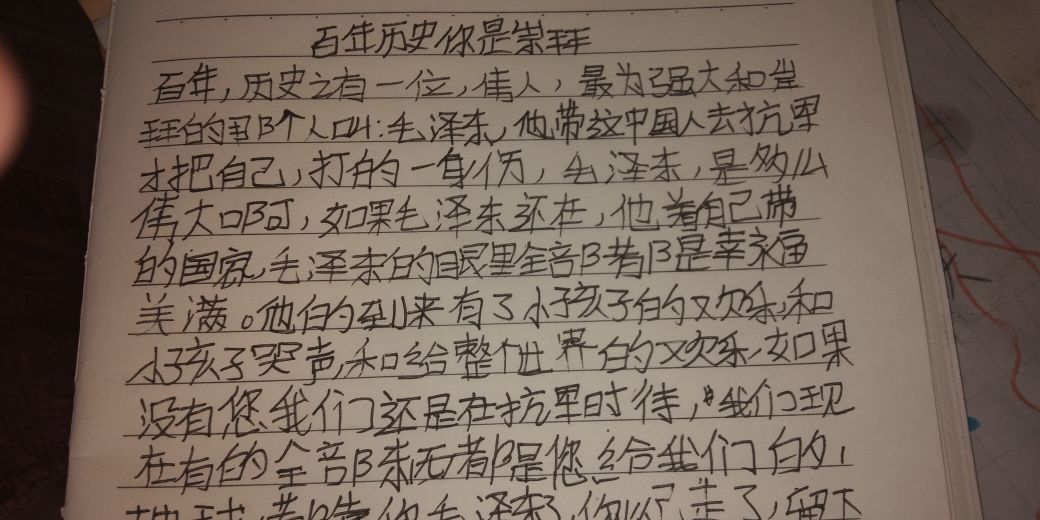 百年历史你是崇拜
百年,历史之有一位,伟人,最为强大和崇
拜的那个人叫:毛泽东,他带这中国人去抗军
才把自己,打的一身伤,毛泽东,是多么
伟大啊,如果毛泽东还在,他看自己带
的国家,毛泽东的眼里全部都是幸福
美满。他的到来有了小孩子的欢乐,和
小孩子哭声,和给整个世界的欢乐,如果
没有您我们还是在抗军时待,我们现
在有的全部东西都是您给我们的,
地球,都 你毛泽东了,你 走了,留下